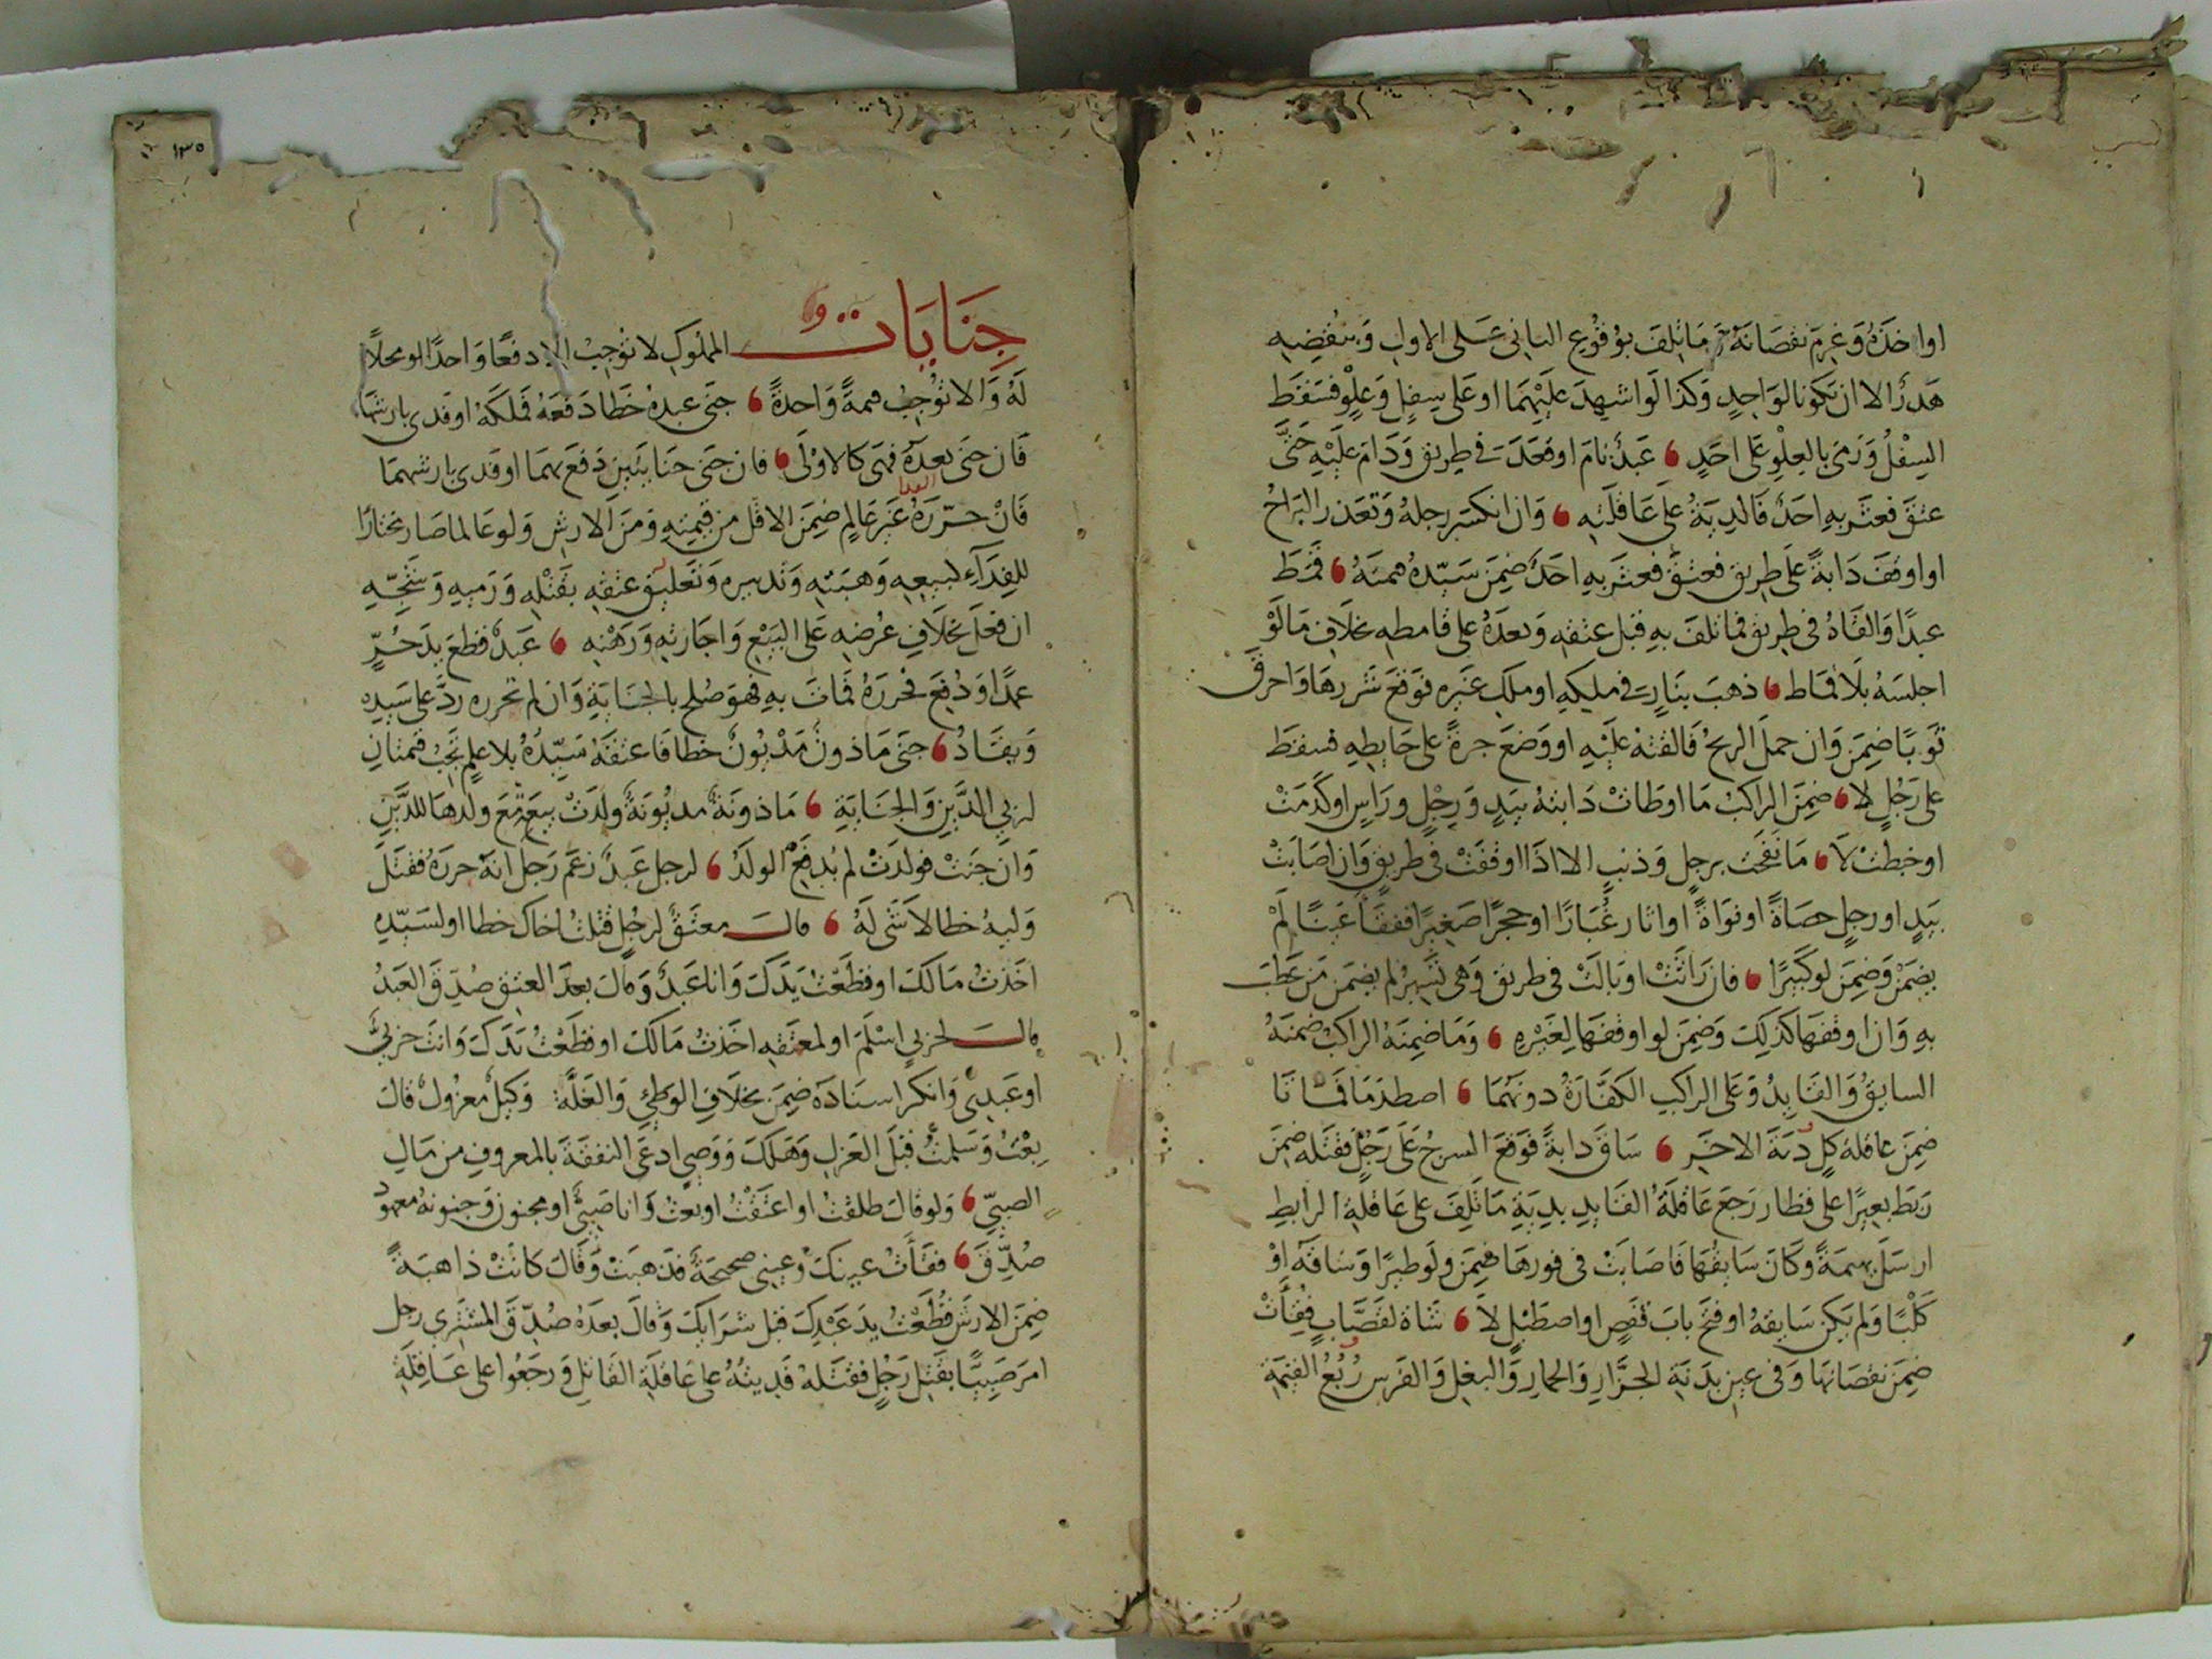 او اخذه وغرم نقصانه وما تلف بوقوع الثاني على الاول وبنقضه
هدر الا ان يكونا لواحد وكذا لو اشهد عليهما او على سفل وعلو فسقط
السفل ورمى بالعلو على احد عبد نام او قعد في طريق ودام عليه حتى
عتق فعثر به احد فالدية على عاقلته وان انكسر رجله وتعذر البراح
او اوقف دابة على طريق فعتق فعثر به احد ضمن سيده قيمته قمط
عبدا والقاه في طريق فما تلف به قبل عتقه وبعده على قامطه بخلاف ما لو
اجلسه بلا قماط ذهب بنار في ملكه او ملك غيره فوقع شررها واحرق
ثوبا ضمن وان حمل الريح فالقته عليه او وضع جرة على حايطه فسقط
على رجل لا ضمن الراكب ما اوطات دابته بيد ورجل وراس او كدمت
او خبطت لا ما نفحت برجل وذنب الا اذا اوقفت في طريق وان اصابت
بيد او رجل حصاة او نواة او اثار غبارا او حجرا صغيرا ففقأ عينا لم
يضمن وضمن لو كبيرا فان راثت او بالت في طريق وهي تسير لم يضمن من عطب
به وان اوقفها كذلك وضمن لو اوقفها لغيره وما ضمنه الراكب ضمنه
السايق والقايد وعلى الراكب الكفارة دونهما اصطدما فماتا
ضمن عاقلة كل دية الاخر ساق دابة فوقع السرج على رجل فقتله ضمن
ربط بعيرا على قطار رجع عاقلة القايد بدية ما تلف على عاقلة الرابط
ارسل بهيمة وكان سايقها فاصابت في فورها ضمن ولو طيرا وساقه او
كلبا ولم يكن سايقه او فتح باب قفص او اصطبل لا شاة لقصاب فقئت
ضمن نقصانها وفي عين بدنة الجزار والحمار والبغل والفرس ربع القيمة
جنايات المملوك لا توجب الا دفعا واحدا لو محلا
له والا توجب قيمة واحدة جنى عبده خطا دفعه فملكه او فدى بارشها
فان جنى بعده فهي كالاولى فان جنى جنايتين دفع بهما او فدى بارشهما
فان حرره غير عالم ضمن الاقل من قيمته ومن الارش ولو عالما صار مختارا
للفداء لبيعه وهبته وتدبيره وتعليق عتقه بقتله ورميه وشجه
ان فعل بخلاف عرضه على البيع واجارته ورهنه عبد قطع يد حر
عمدا ودفع فحرره فمات به فهو صلح بالجناية وان لم يحرره رد على سيده
ويقاد جنى ماذون مديون خطا فاعتقه سيده بلا علم تجب قيمتان
لربي الدين والجناية ماذونة مديونة ولدت بيع مع ولدها للدين
وان جنت فولدت لم يدفع الولد لرجل عبد زعم رجل انه حرره فقتل
وليه خطا لا شي له قال معتق لرجل قتلت اخاك خطا او لسيده
اخذت مالك او قطعت يدك وانا عبد وقال بعد العتق صدق العبد
قال لحربي اسلم او لمعتقه اخذت مالك او قطعت يدك وانت حربي
او عبدي وانكر اسناده ضمن بخلاف الوطئ والغلة وكيل معزول قال
بعت وسلمت قبل العزل وهلك ووصي ادعى النفقة بالمعروف من مال
الصبي ولو قال طلقت او اعتقت او بعت وانا صبي او مجنون وجنونه معهود
صدق فقأت عينك وعيني صحيحة فذهبت وقال كانت ذاهبة
ضمن الارش قطعت يد عبدك قبل شرايك وقال بعده صدق المشتري رجل
امر صبيا بقتل رجل فقتله فديته على عاقلة القاتل ورجعوا على عاقلة
١٣٥